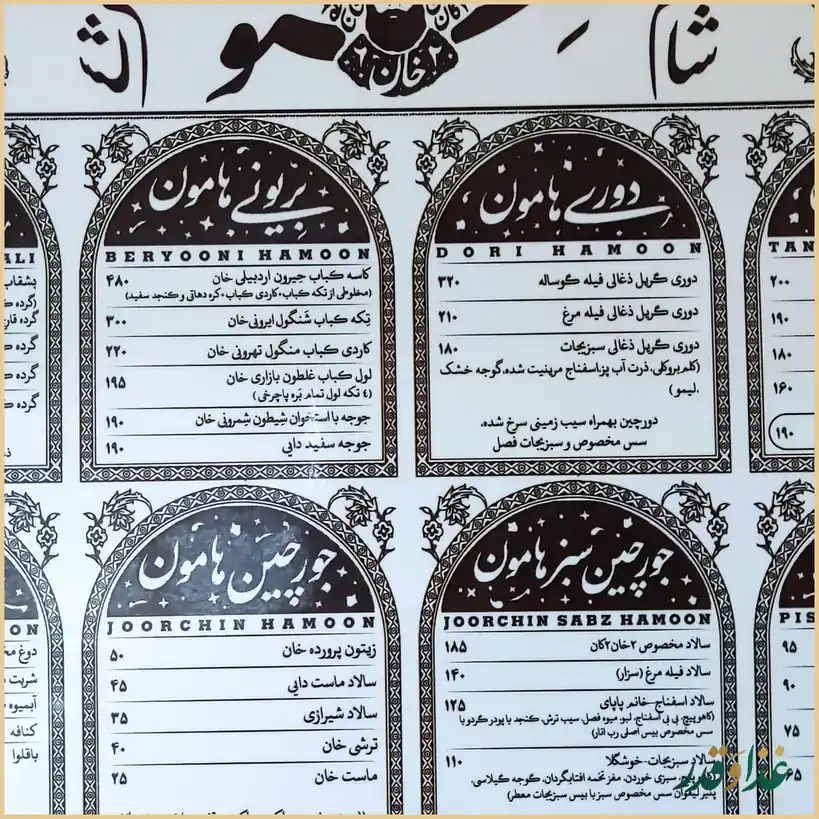 خان
دوری هامون
DORI HAMOON
دوری گریل ذغالی فیله گوساله ۳۲۰
دوری گریل ذغالی فیله مرغ ۲۱۰
دوری گریل ذغالی سبزیجات ۱۸۰
(کلم بروکلی، ذرت آب پز، اسفناج مرینیت شده، گوجه خشک
،لیمو)
دورچین بهمراه سیب زمینی سرخ شده،
سس مخصوص و سبزیجات فصل
بریونی هامون
BERYOONI HAMOON
کاسه کباب جیرون اردبیلی خان ۴۸۰
(مخلوطی از تکه کباب، کاردی کباب، کره دهاتی و کنجد سفید)
تکه کباب شنگول ایرونی خان ۳۰۰
کاردی کباب منگول تهرونی خان ۲۲۰
لول کباب غلطون بازاری خان ۱۹۵
(۴ تکه لول تمام بره پاچرخی)
جوجه با استخوان شیطون شمرونی خان ۱۹۰
جوجه سفید دایی ۱۹۰
TAN
۲۰۰
۱۹۰
۱۸۰
۱۶۰
۱۹۰
ALI
بشقاب
گرده
گرده
گرده
گرده
جورچین سبز هامون
JOORCHIN SABZ HAMOON
سالاد مخصوص ۲خان۲کان ۱۸۵
سالاد فیله مرغ (سزار) ۱۴۰
سالاد اسفناج-خانم پاپای ۱۲۵
(کاهو پیچ، بی بی اسفناج، لبو، میوه فصل، سیب ترش، کنجد یا پودر گردو با
سس مخصوص بیس اصلی رب انار)
سالاد سبزیجات-خوشگلا ۱۱۰
پیچ، سبزی خوردن، مغز تخمه افتابگردان، گوجه گیلاسی،
پنیر لیقوان سس مخصوص سبز با بیس سبزیجات معطر)
جورچین هامون
JOORCHIN HAMOON
زیتون پرورده خان ۵۰
سالاد ماست دایی ۴۵
سالاد شیرازی ۳۵
ترشی خان ۴۰
ماست خان ۲۵
PIS
۹۵
۹۰
۷۵
۶۵
ON
دوغ
شربت
آبمیوه
کنافه
باقلوا
غذا و قدر